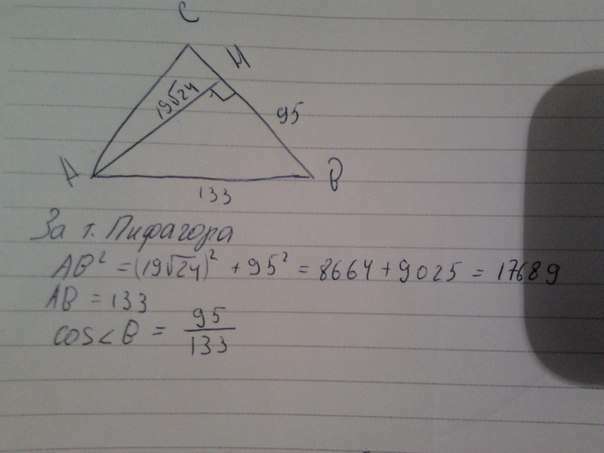 C
H
19√24
95
A
B
133
За т. Пифагора
AB² = (19√24)² + 95² = 8664 + 9025 = 17689
AB = 133
cos<B = 95/133